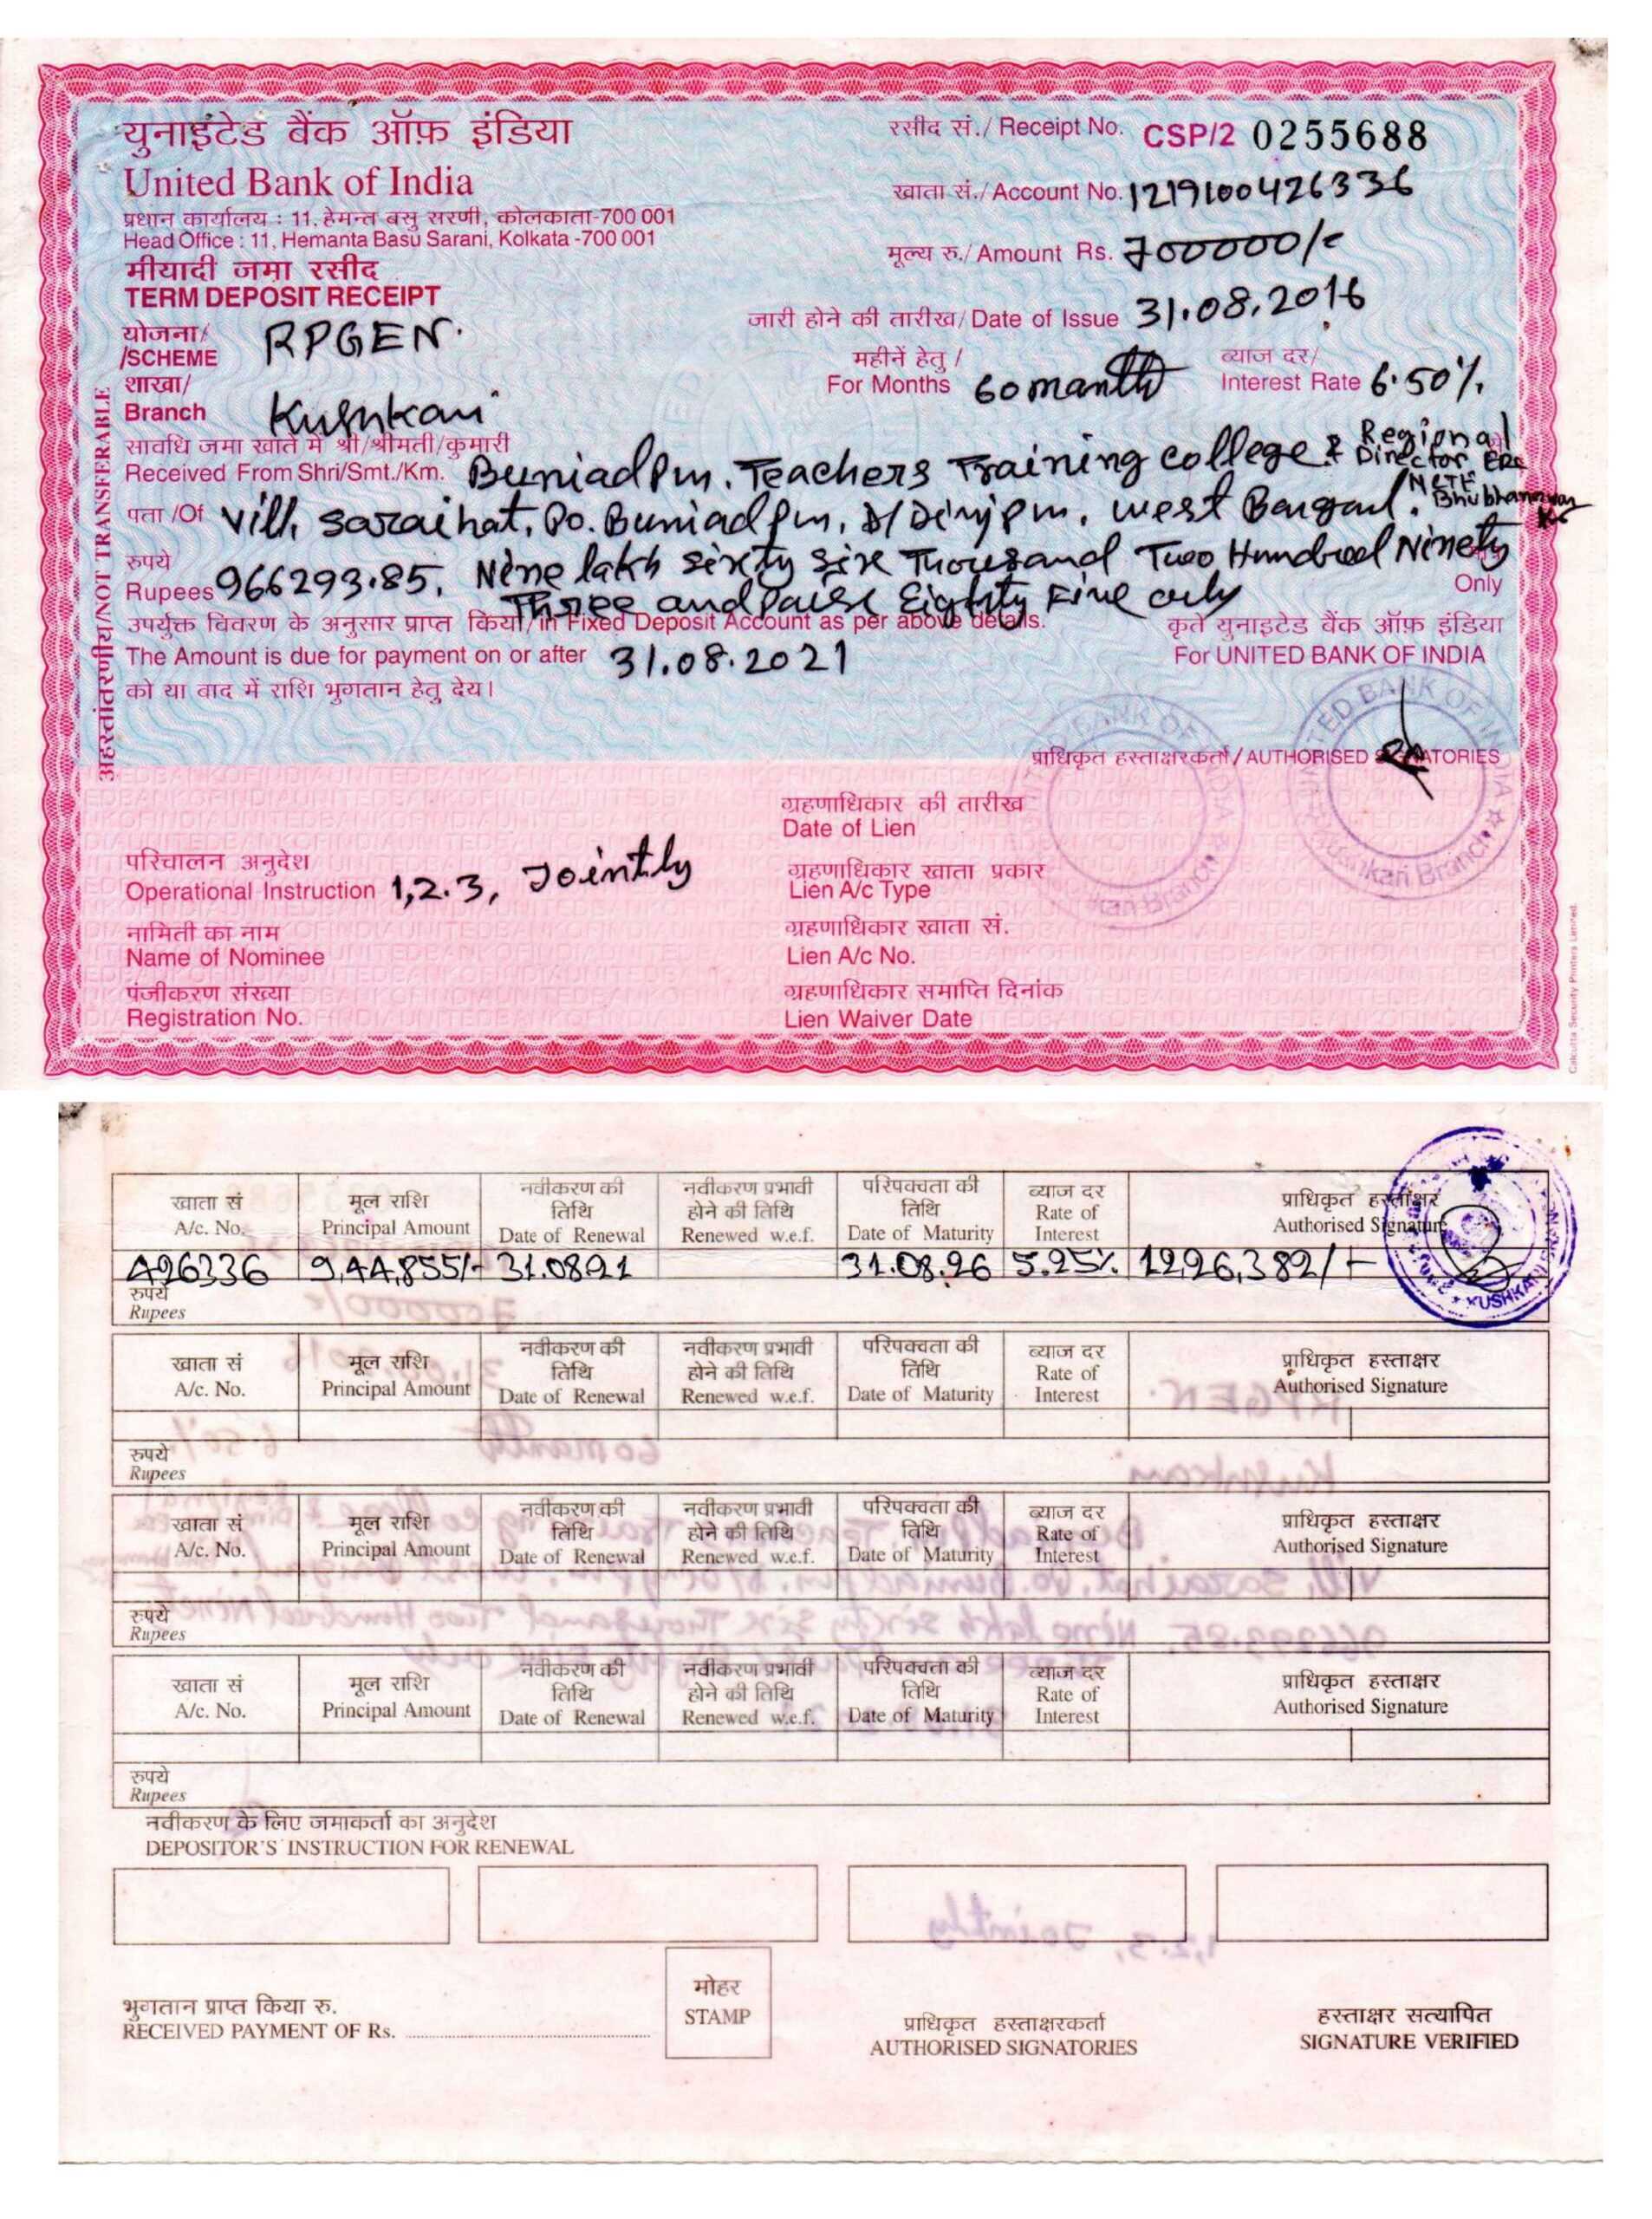 युनाइटेड बैंक ऑफ़ इंडिया
United Bank of India
प्रधान कार्यालय : 11, हेमन्त बसु सरणी, कोलकाता-700 001
Head Office : 11, Hemanta Basu Sarani, Kolkata -700 001
मीयादी जमा रसीद
TERM DEPOSIT RECEIPT
रसीद सं./ Receipt No. CSP/2 0255688
खाता सं./ Account No. 1219100426336
मूल्य रु./ Amount Rs. 700000/-
जारी होने की तारीख/ Date of Issue 31.08.2016
योजना/
/SCHEME RPGEN.
महीनें हेतु /
For Months 60 manth
ब्याज दर/
Interest Rate 6.50%
शाखा/
Branch Kushkari
सावधि जमा खाते में श्री/श्रीमती/कुमारी
Received From Shri/Smt./Km. Buniadpur, Teachers Training college & Regional Director, ERC NCTE Bhubhaneswar
पता /Of Vill, Saraihat, Po. Buniadpur, D/Dinjpur, west Bangal.
रुपये
Rupees 966293.85, Nine lakh sixty six Thousand Two Hundred Ninety
Only
Three and Paise Eighty Five only
उपर्युक्त विवरण के अनुसार प्राप्त किया/in Fixed Deposit Account as per above details.
The Amount is due for payment on or after 31.08.2021
को या बाद में राशि भुगतान हेतु देय।
कृते युनाइटेड बैंक ऑफ़ इंडिया
For UNITED BANK OF INDIA
प्राधिकृत हस्ताक्षरकर्ता / AUTHORISED SIGNATORIES
अहस्तांतरणीय/NOT TRANSFERABLE
परिचालन अनुदेश
Operational Instruction 1,2.3, Jointly
नामिती का नाम
Name of Nominee
पंजीकरण संख्या
Registration No.
ग्रहणाधिकार की तारीख
Date of Lien
ग्रहणाधिकार खाता प्रकार
Lien A/c Type
ग्रहणाधिकार खाता सं.
Lien A/c No.
ग्रहणाधिकार समाप्ति दिनांक
Lien Waiver Date
Calcutta Security Printers Limited.
खाता सं मूल राशि नवीकरण की तिथि नवीकरण प्रभावी होने की तिथि परिपक्वता की तिथि ब्याज दर प्राधिकृत हस्ताक्षर
A/c. No. Principal Amount Date of Renewal Renewed w.e.f. Date of Maturity Rate of Interest Authorised Signature
426336 9,44,855/- 31.0821 31.08.26 5.25% 1226,382/-
रुपये
Rupees
KUSHKARI
खाता सं मूल राशि नवीकरण की तिथि नवीकरण प्रभावी होने की तिथि परिपक्वता की तिथि ब्याज दर प्राधिकृत हस्ताक्षर
A/c. No. Principal Amount Date of Renewal Renewed w.e.f. Date of Maturity Rate of Interest Authorised Signature
रुपये
Rupees
खाता सं मूल राशि नवीकरण की तिथि नवीकरण प्रभावी होने की तिथि परिपक्वता की तिथि ब्याज दर प्राधिकृत हस्ताक्षर
A/c. No. Principal Amount Date of Renewal Renewed w.e.f. Date of Maturity Rate of Interest Authorised Signature
रुपये
Rupees
खाता सं मूल राशि नवीकरण की तिथि नवीकरण प्रभावी होने की तिथि परिपक्वता की तिथि ब्याज दर प्राधिकृत हस्ताक्षर
A/c. No. Principal Amount Date of Renewal Renewed w.e.f. Date of Maturity Rate of Interest Authorised Signature
रुपये
Rupees
नवीकरण के लिए जमाकर्ता का अनुदेश
DEPOSITOR'S INSTRUCTION FOR RENEWAL
भुगतान प्राप्त किया रु.
RECEIVED PAYMENT OF Rs.
मोहर
STAMP
प्राधिकृत हस्ताक्षरकर्ता
AUTHORISED SIGNATORIES
हस्ताक्षर सत्यापित
SIGNATURE VERIFIED